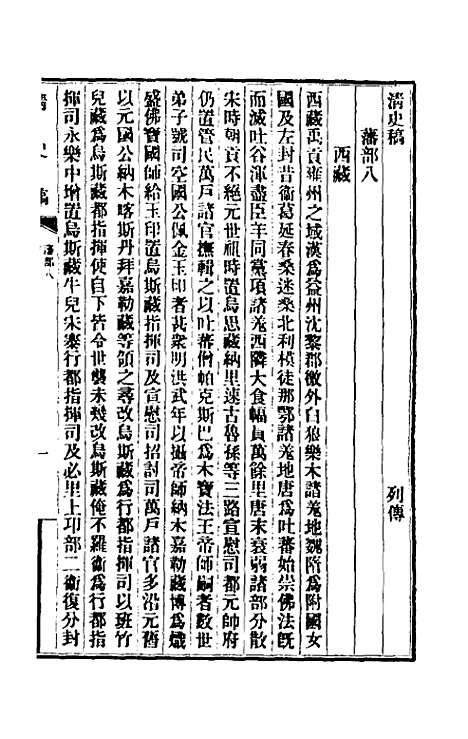 清史稿 列傳
藩部八
西藏
西藏禹貢雍州之域漢爲益州沈黎郡徼外白狼樂木諸羌地魏隋爲附國女
國及左封昔衛葛延春桑迷桑北利模徒那鄂諸羌地唐爲吐蕃始崇佛法既
而滅吐谷渾盡臣羊同黨項諸羌西隣大食幅員萬餘里唐末衰弱諸部分散
宋時朝貢不絕元世祖時置烏思藏納里速古魯孫等三路宣慰司都元帥府
仍置管民萬戶諸官撫輯之以吐蕃僧帕克斯巴爲大寶法王帝師嗣者數世
弟子號司空國公佩金玉印者甚衆明洪武年以攝帝師納木嘉勒藏博爲熾
盛佛寶國師給玉印置烏斯藏指揮司及宣慰司招討司萬戶諸官多沿元舊
以元國公納木喀斯丹拜嘉勒藏等領之尋改烏斯藏爲行都指揮司以班竹
兒藏爲烏斯藏都指揮使自下皆令世襲未幾改烏斯藏俺不羅衛爲行都指
揮司永樂中增置烏斯藏牛兒宋寨行都指揮司及必里上卭部二衛復分封
清史稿 藩部八 一